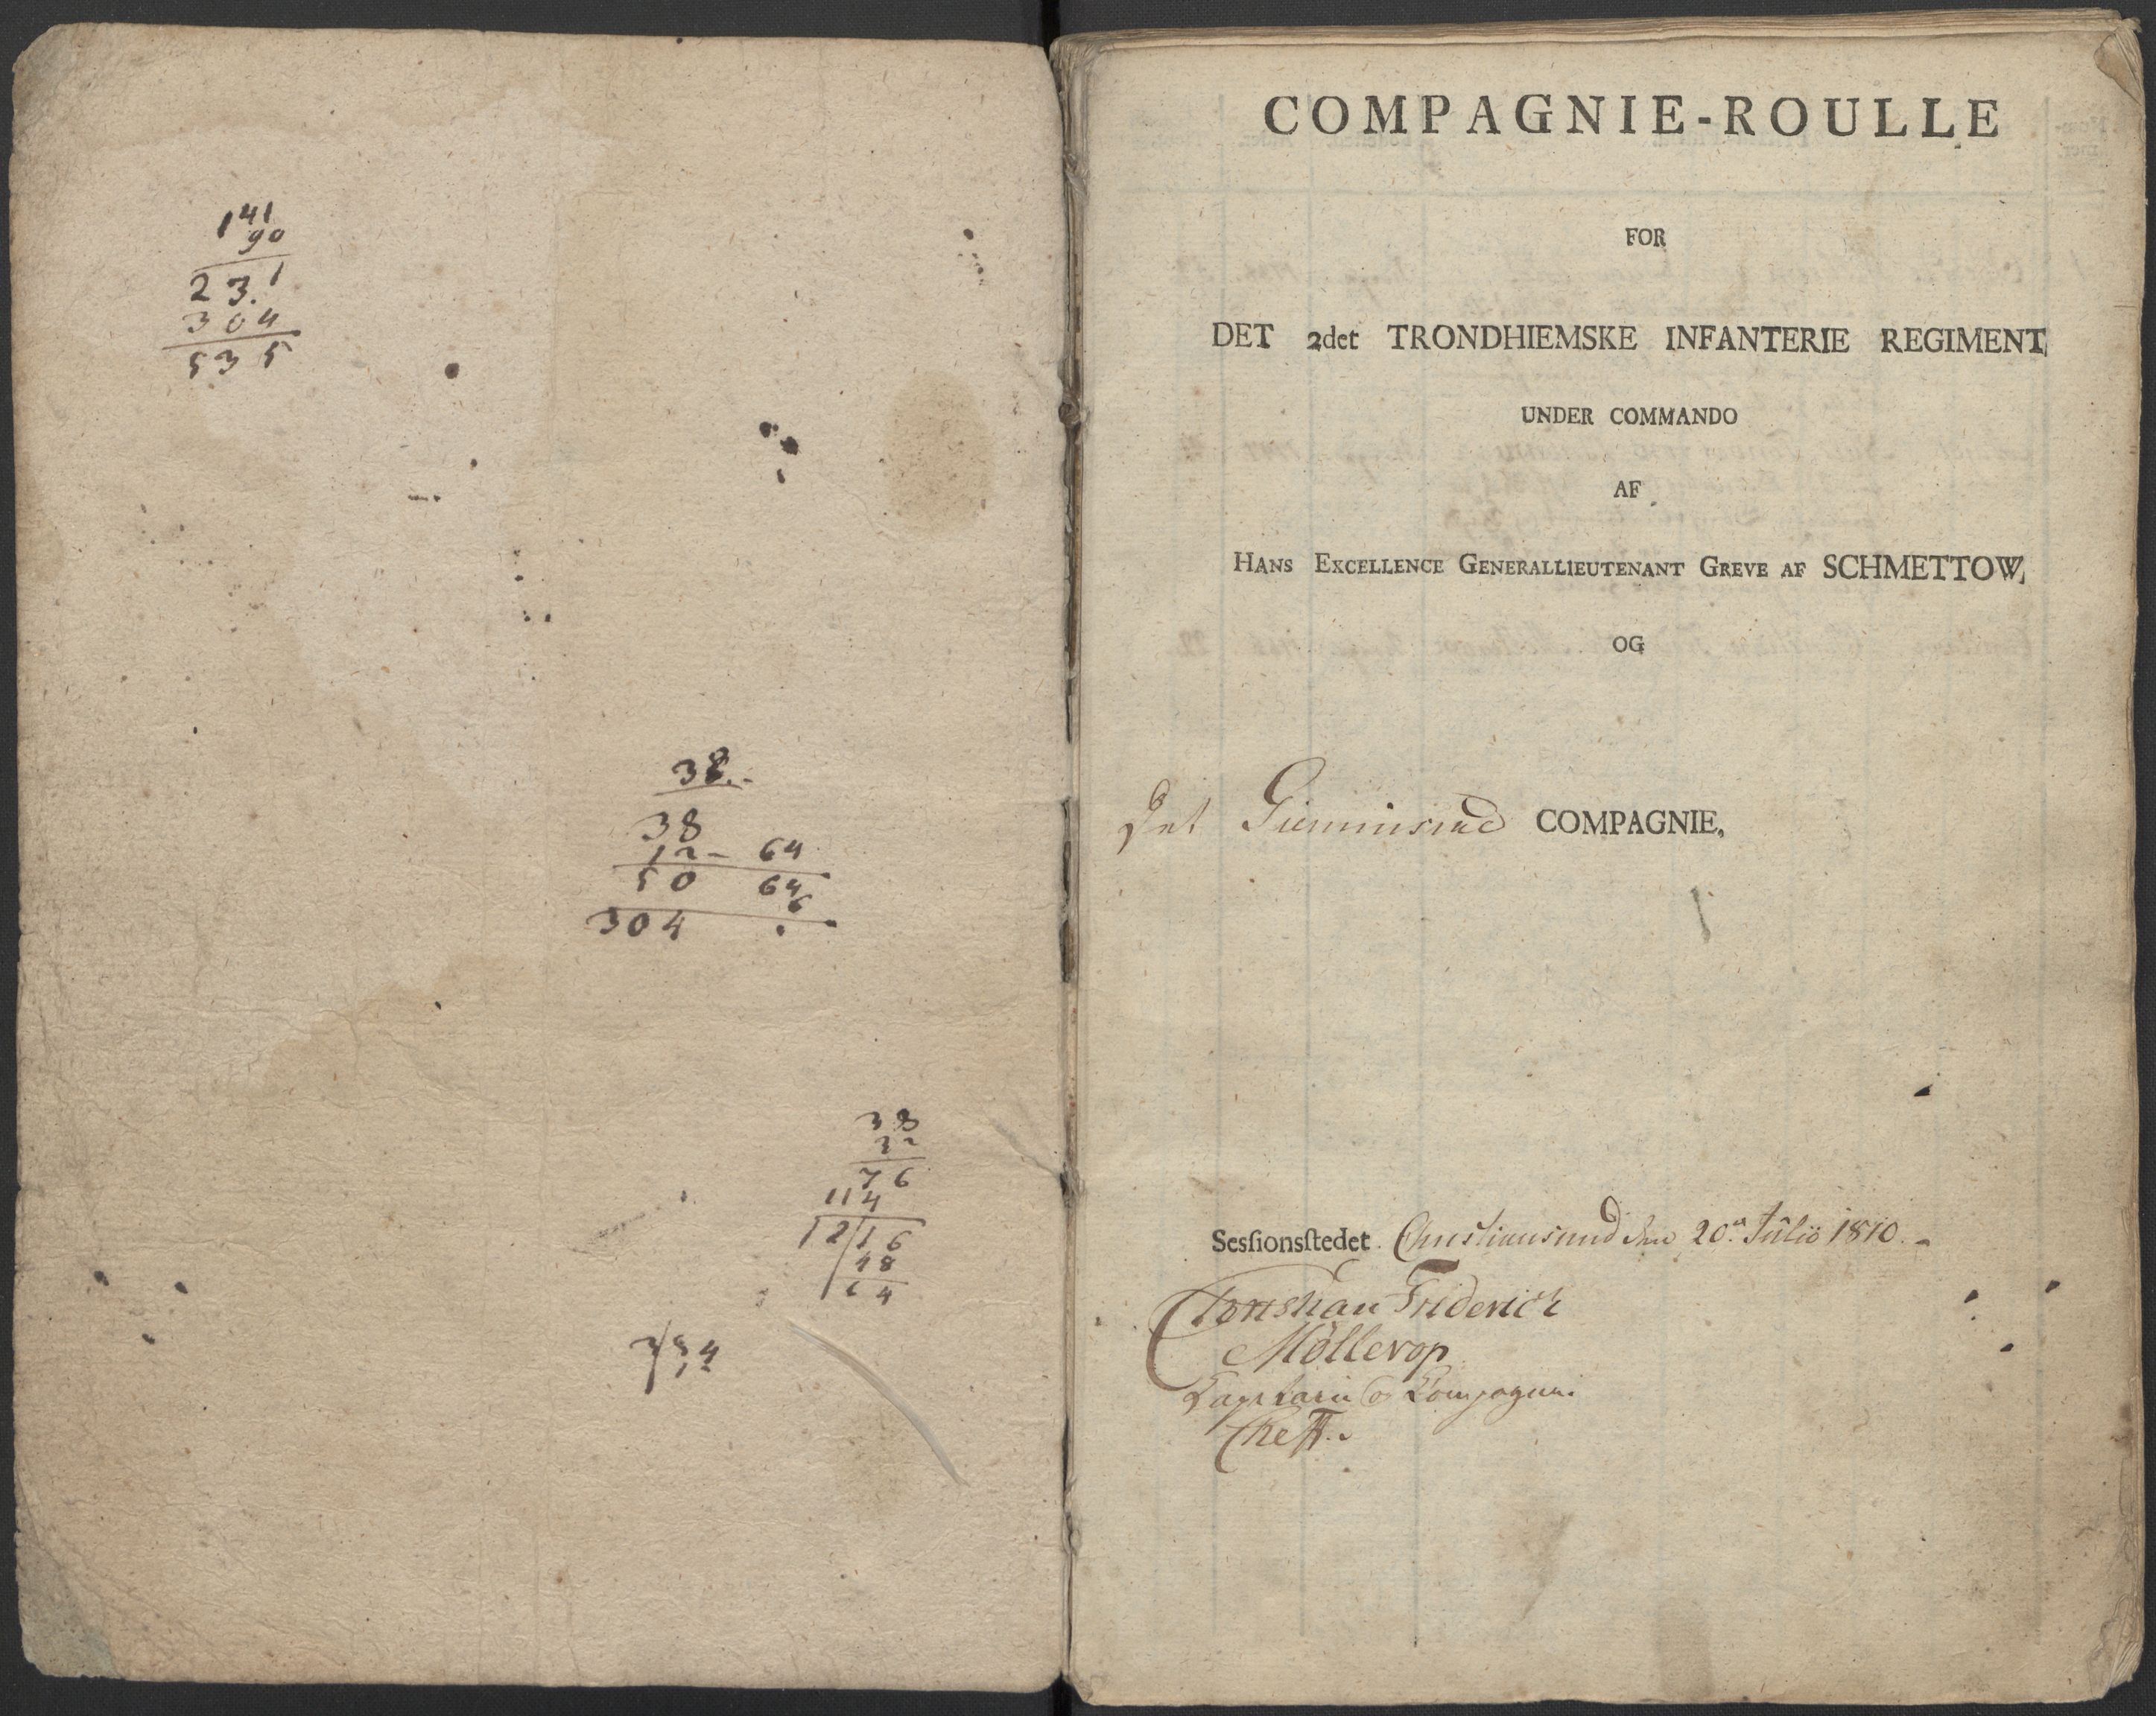 141
90
231
304
535
38.-
38
12- 64
50 64
6
304 .
38
32
76
114
12|16
48
64
COMPAGNIE-ROULLE
FOR
DET 2det TRONDHIEMSKE INFANTERIE REGIMENT
UNDER COMMANDO
AF
HANS EXCELLENCE GENERALLIEUTENANT GREVE AF SCHMETTOW,
OG
Det COMPAGNIE,
Sesſionsſtedet Christiansund den 20de Julii 1810.-
Friderich
Möllerop
Capitain og Compagnie
Cheff.